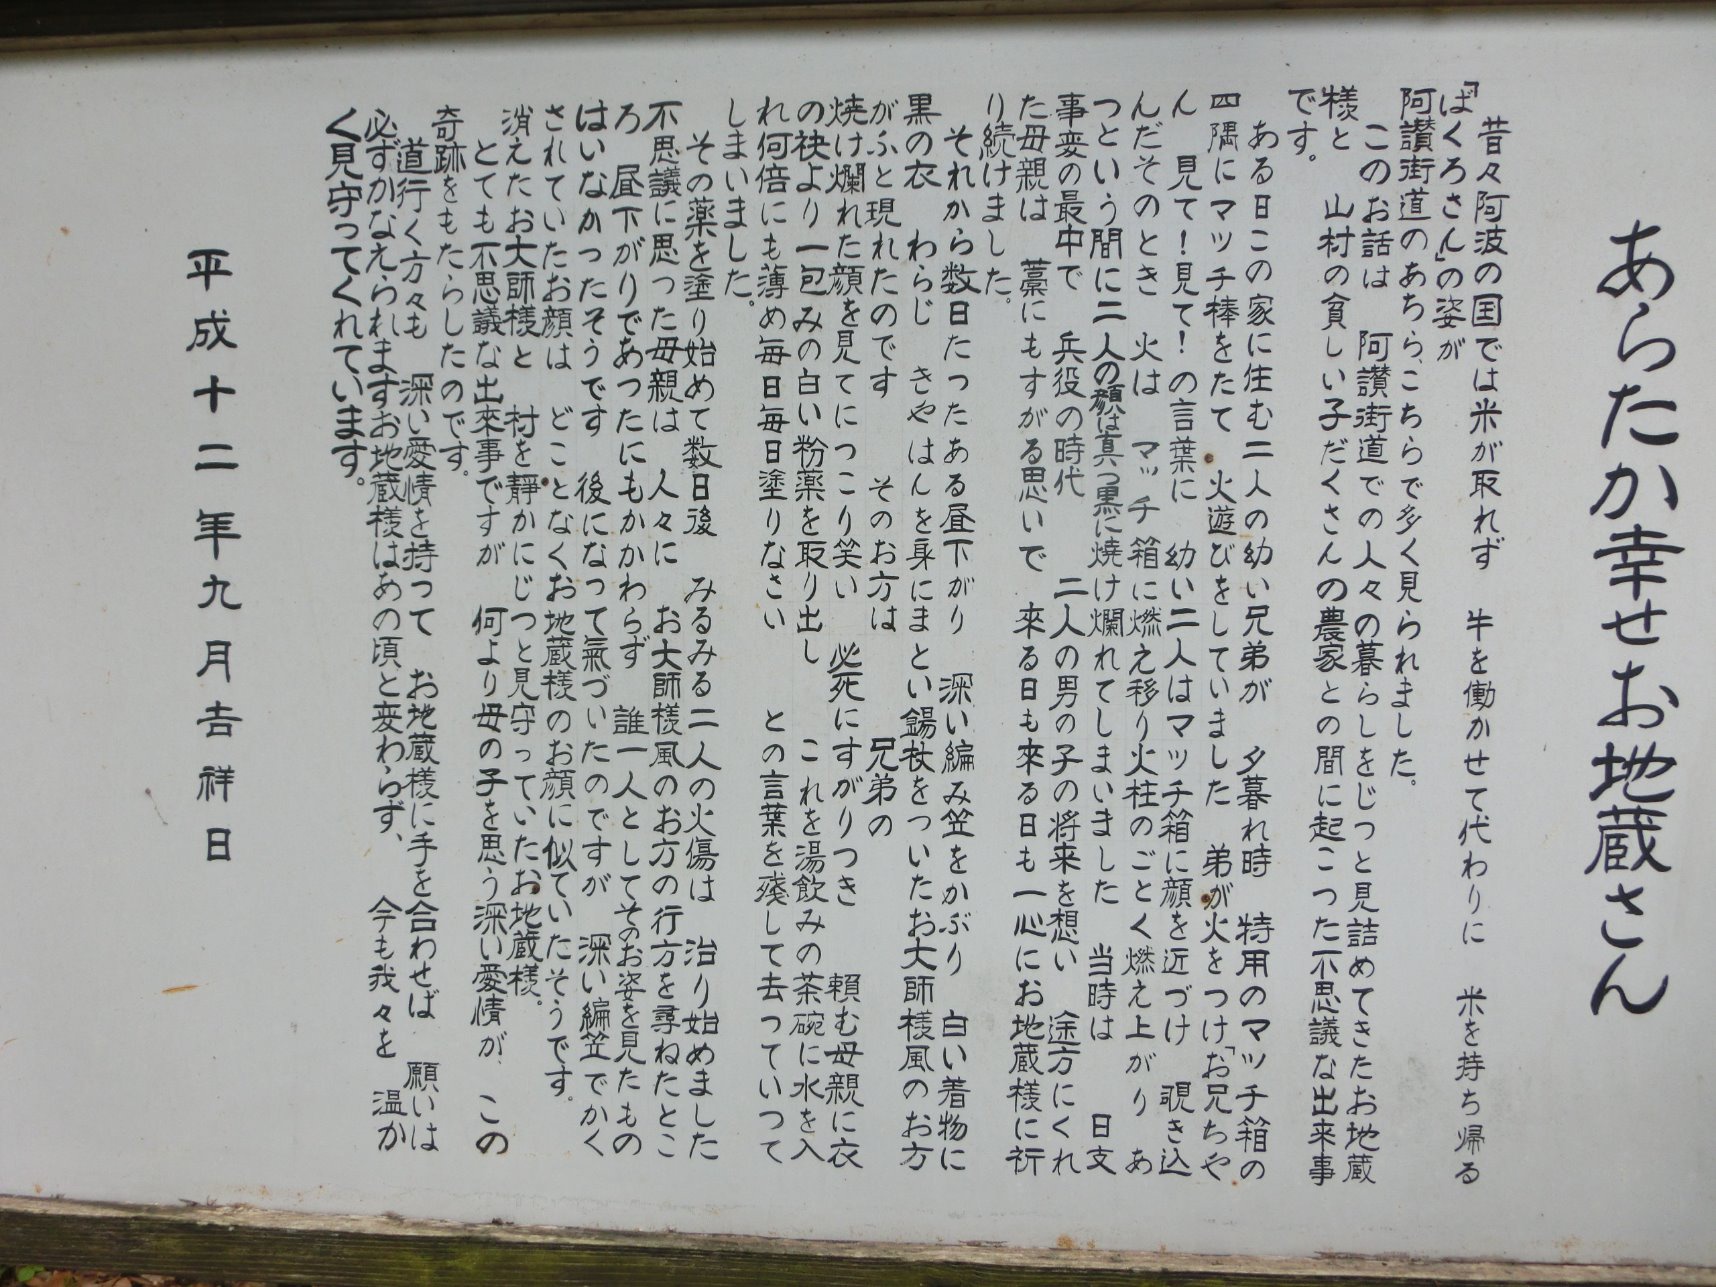 あらたか幸せお地蔵さん
昔々阿波の国では米が取れず 牛を働かせて代わりに 米を持ち帰る
「ばくろさん」の姿が
阿讃街道のあちら、こちらで多く見られました。
このお話は 阿讃街道での人々の暮らしをじっと見詰めてきたお地蔵
様と 山村の貧しい子だくさんの農家との間に起こった不思議な出来事
です。
ある日この家に住む二人の幼い兄弟が 夕暮れ時 特用のマッチ箱の
四隅にマッチ棒をたて 火遊びをしていました 弟が火をつけ「お兄ちゃ
ん 見て！見て！の言葉に 幼い二人はマッチ箱に顔を近づけ 覗き込
んだそのとき 火は マッチ箱に燃え移り火柱のごとく燃え上がり あ
っという間に二人の顔は真っ黒に焼け爛れてしまいました 当時は 日支
事変の最中で 兵役の時代 二人の男の子の将来を想い 途方にくれ
た母親は 藁にもすがる思いで 来る日も来る日も一心にお地蔵様に祈
り続けました。
それから数日たったある昼下がり 深い編み笠をかぶり 白い着物に
黒の衣 わらじ きゃはんを身にまとい錫杖をついたお大師様風のお方
がふと現れたのです そのお方は 兄弟の
焼け爛れた顔を見てにっこり笑い 必死にすがりつき 頼む母親に衣
の袂より一包みの白い粉薬を取り出し これを湯飲みの茶碗に水を入
れ何倍にも薄め毎日毎日塗りなさい との言葉を残して去っていって
しまいました。
その薬を塗り始めて数日後 みるみる二人の火傷は 治り始めました
不思議に思った母親は 人々に お大師様風のお方の行方を尋ねたとこ
ろ 昼下がりであったにもかかわらず 誰一人としてそのお姿を見たもの
はいなかったそうです 後になって氣づいたのですが 深い編笠でかく
されていたお顔は どことなくお地蔵様のお顔に似ていたそうです。
消えたお大師様と 村を静かにじっと見守っていたお地蔵様。
とても不思議な出来事ですが 何より母の子を思う深い愛情が、この
奇跡をもたらしたのです。
道行く方々も 深い愛情を持って お地蔵様に手を合わせば 願いは
必ずかなえられますお地蔵様はあの頃と変わらず、 今も我々を 温か
く見守ってくれています。
平成十二年九月吉祥日